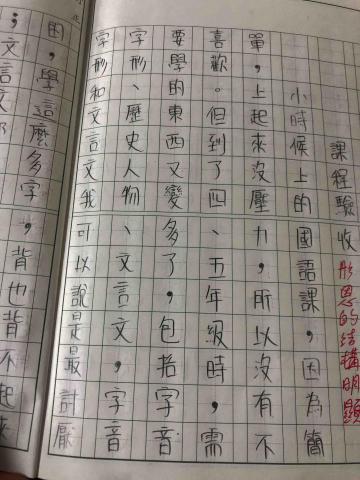 課程驗收
彤恩的結構明顯
小時候上的國語課，因為簡
單，上起來沒壓力，所以沒有不
喜歡。但到了四、五年級時，需
要學的東西又變多了，包括字音
字形、歷史人物、文言文，字音
字形和文言文我可以說是最討厭
的，學這麼多字，背也背不起來
；文言文